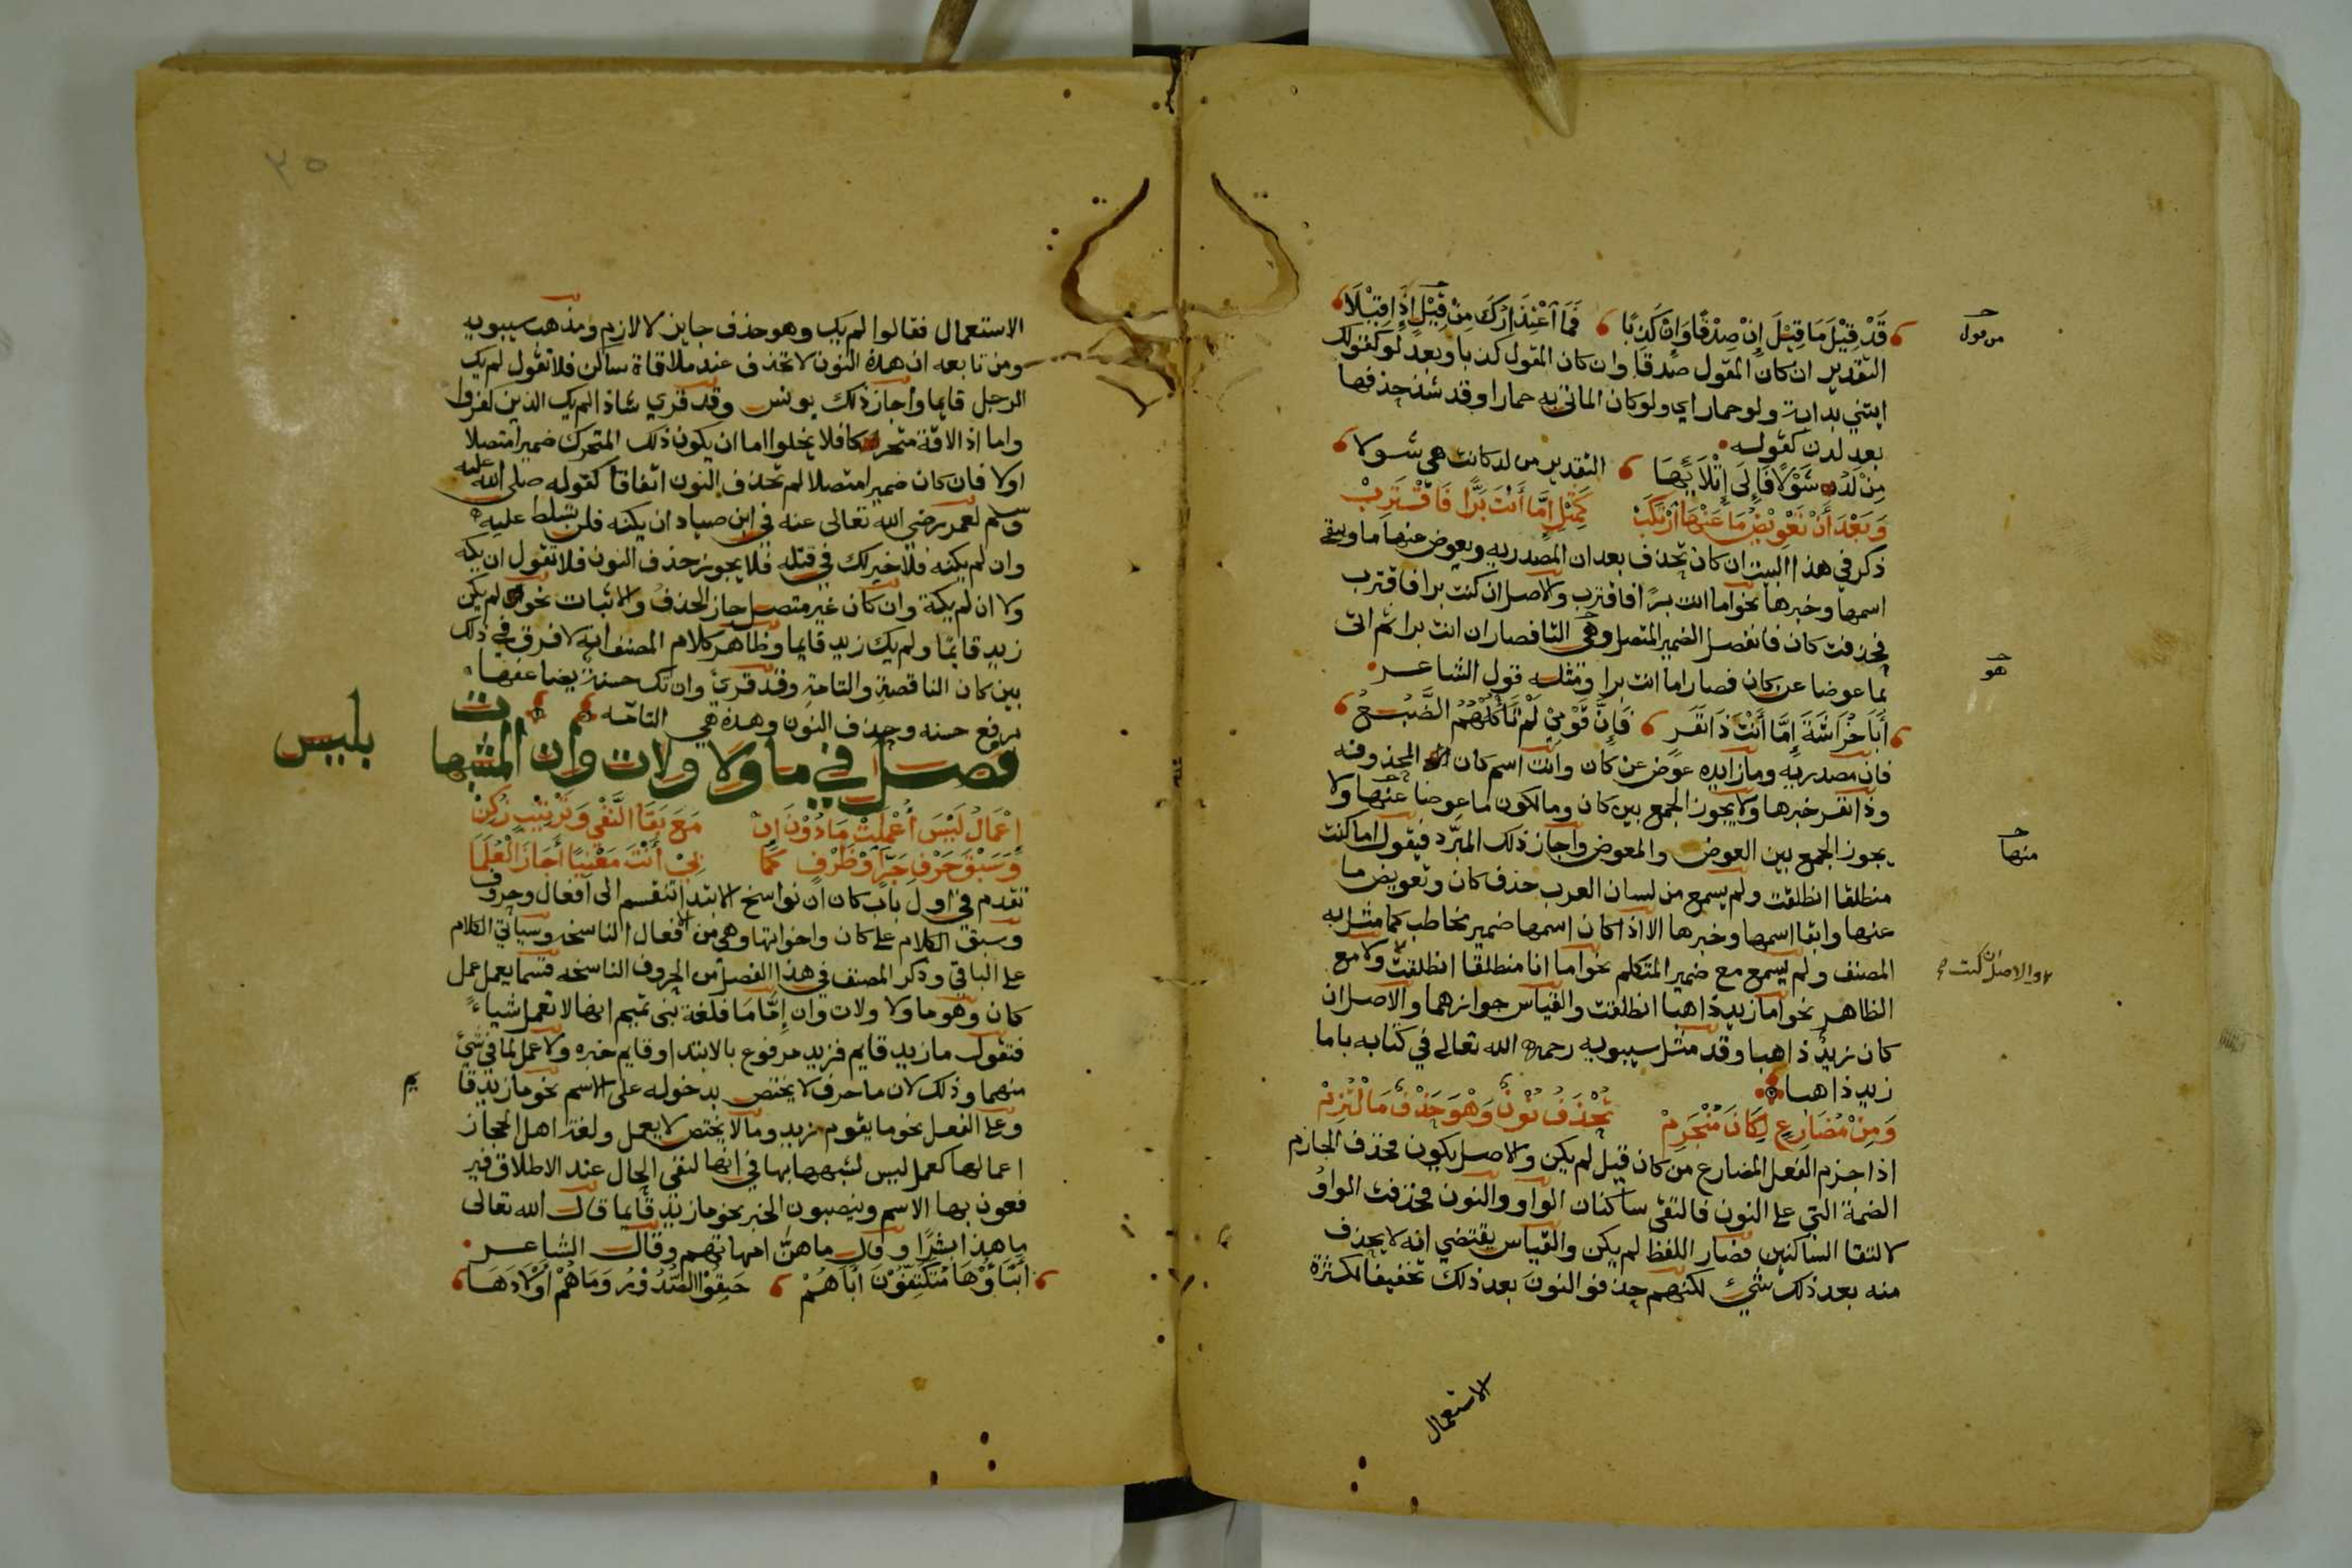 قَدْ قِيْلَ مَا قِيْلَ إِنْ صِدْقًا وَإِنْ كَذِبًا فَمَا اعْتِذَارُكَ مِنْ قِيْلٍ إِذَا قِيْلَا
من قول
التقدير ان كان المقول صدقا وان كان المقول كذبا وبعد لو كقولك
ايتني بدابة ولو حمارا اي ولو كان الماتي به حمارا وقد شذ حذفها
بعد لدن كقوله
مِنْ لَدُ شَوْلًا فَإِلَى إِتْلَائِهَا التقدير من لد كانت هي شولا
وَبَعْدَ أَنْ تَعْوِيْضُ مَا عَنْهَا ارْتُكِبْ كَمِثْلِ إِمَّا أَنْتَ بَرًّا فَاقْتَرِبْ
ذكر في هذا البيت ان كان تحذف بعد ان المصدريه ويعوض عنها ما ويبقى
اسمها وخبرها نحو اما انت برًا فاقترب والاصل ان كنت برا فاقترب
فحذفت كان فانفصل الضمير المتصل وهي التا فصار ان انت برا ثم اتى
هو
بما عوضا عن كان فصار اما انت برا ومثله قول الشاعر
أَبَا خُرَاشَةَ إِمَّا أَنْتَ ذَا نَفَرٍ فَإِنَّ قَوْمِيْ لَمْ تَأْكُلْهُمُ الضَّبُعُ
فان مصدريه وما زايده عوض عن كان وانت اسم كان المحذوفه
وذا نفر خبرها ولا يجوز الجمع بين كان وما لكون ما عوضا عنها ولا
يجوز الجمع بين العوض والمعوض واجاز ذلك المبرّد فيقول اما كنت
منها
منطلقا انطلقت ولم يسمع من لسان العرب حذف كان وتعويض ما
عنها وابقا اسمها وخبرها الا اذا كان اسمها ضمير مخاطب كما مثل به
المصنف ولم يسمع مع ضمير المتكلم نحو اما انا منطلقا انطلقت ولا مع
والاصل ان كنت
الظاهر نحو اما زيد ذاهبا انطلقت والقياس جوازهما والاصل ان
كان زيدٌ ذاهبا وقد مثل سيبويه رحمه الله تعالى في كتابه باما
زيد ذاهبا
وَمِنْ مُضَارِعٍ لِكَانَ مُنْجَزِمْ تُحْذَفُ نُوْنٌ وَهْوَ حَذْفٌ مَا الْتُزِمْ
اذا جزم الفعل المضارع من كان قيل لم يكن والاصل يكون فحذف الجازم
الضمة التي على النون فالتقى ساكنان الواو والنون فحذفت الواو
لالتقا الساكنين فصار اللفظ لم يكن والقياس يقتضي انه لا يحذف
منه بعد ذلك شيء لكنهم حذفو النون بعد ذلك تخفيفا لكثرة
الاستعمال
٣٥
الاستعمال فقالوا لم يك وهو حذف جايز لا لازم ومذهب سيبويه
ومن تابعه ان هذه النون لا تحذف عند ملاقاة ساكن فلا تقول لم يك
الرجل قايما واجاز ذلك يونس وقد قري شاذا لم يك الذين كفروا
واما اذا لاقة متحركا فلا يخلوا اما ان يكون ذلك المتحرك ضميرا متصلا
اولا فان كان ضميرا متصلا لم تحذف النون اتفاقا كقوله صلى الله عليه
وسلم لعمر رضي الله تعالى عنه في ابن صياد ان يكنه فلن تسلط عليه
وان لم يكنه فلا خير لك في قتله فلا يجوز حذف النون فلا تقول ان يكه
ولا ان لم يكه وان كان غير متصل جاز الحذف والاثبات نحو لم يكن
زيد قايمًا ولم يك زيد قايما وظاهر كلام المصنف انه لا فرق في ذلك
بين كان الناقصة والتامة وقد قرئ وان تك حسنة يضاعفها
برفع حسنه وحذف النون وهذه هي التامّه
فصل في ما ولا ولات وان المشبهات بليس
إِعْمَالَ لَيْسَ أُعْمِلَتْ مَا دُوْنَ إِنْ مَعَ بَقَا النَّفْيِ وَتَرْتِيْبٍ زُكِنْ
وَسَبْقَ حَرْفِ جَرٍّ أَوْ ظَرْفٍ كَمَا بِيْ أَنْتَ مَعْنِيًا أَجَازَ الْعُلَمَا
تقدم في اول باب كان ان نواسخ الابتدا تنقسم الى افعال وحروف
وسبق الكلام على كان واخواتها وهي من الافعال الناسخه وسياتي الكلام
على الباقي وذكر المصنف في هذا الفصل من الحروف الناسخه قسما يعمل عمل
كان وهو ما ولا ولات وان إِمَّا مَا فلغة بني تميم انها لا تعمل شياء
فتقول ما زيد قايم فزيد مرفوع بالابتدا وقايم خبره ولا عمل لما في شيء
منهما وذلك لان ما حرف لا يختص بدخوله على الاسم نحو ما زيد قا
يم
وعلى الفعل نحو ما يقوم زيد وما لا يختص لا يعمل ولغة اهل الحجاز
اعمالها كعمل ليس لشبهها بها في انها لنفي الحال عند الاطلاق فير
فعون بها الاسم وينصبون الخبر نحو ما زيد قايما قال الله تعالى
ما هذا بشرًا و قال ما هنّ امهاتهم وقال الشاعر
أَبْنَاؤُهَا مُتَكَنِّفُوْنَ أَبَاهُمْ حَنِقُوْا الصُّدُوْرِ وَمَا هُمْ أَوْلَادَهَا